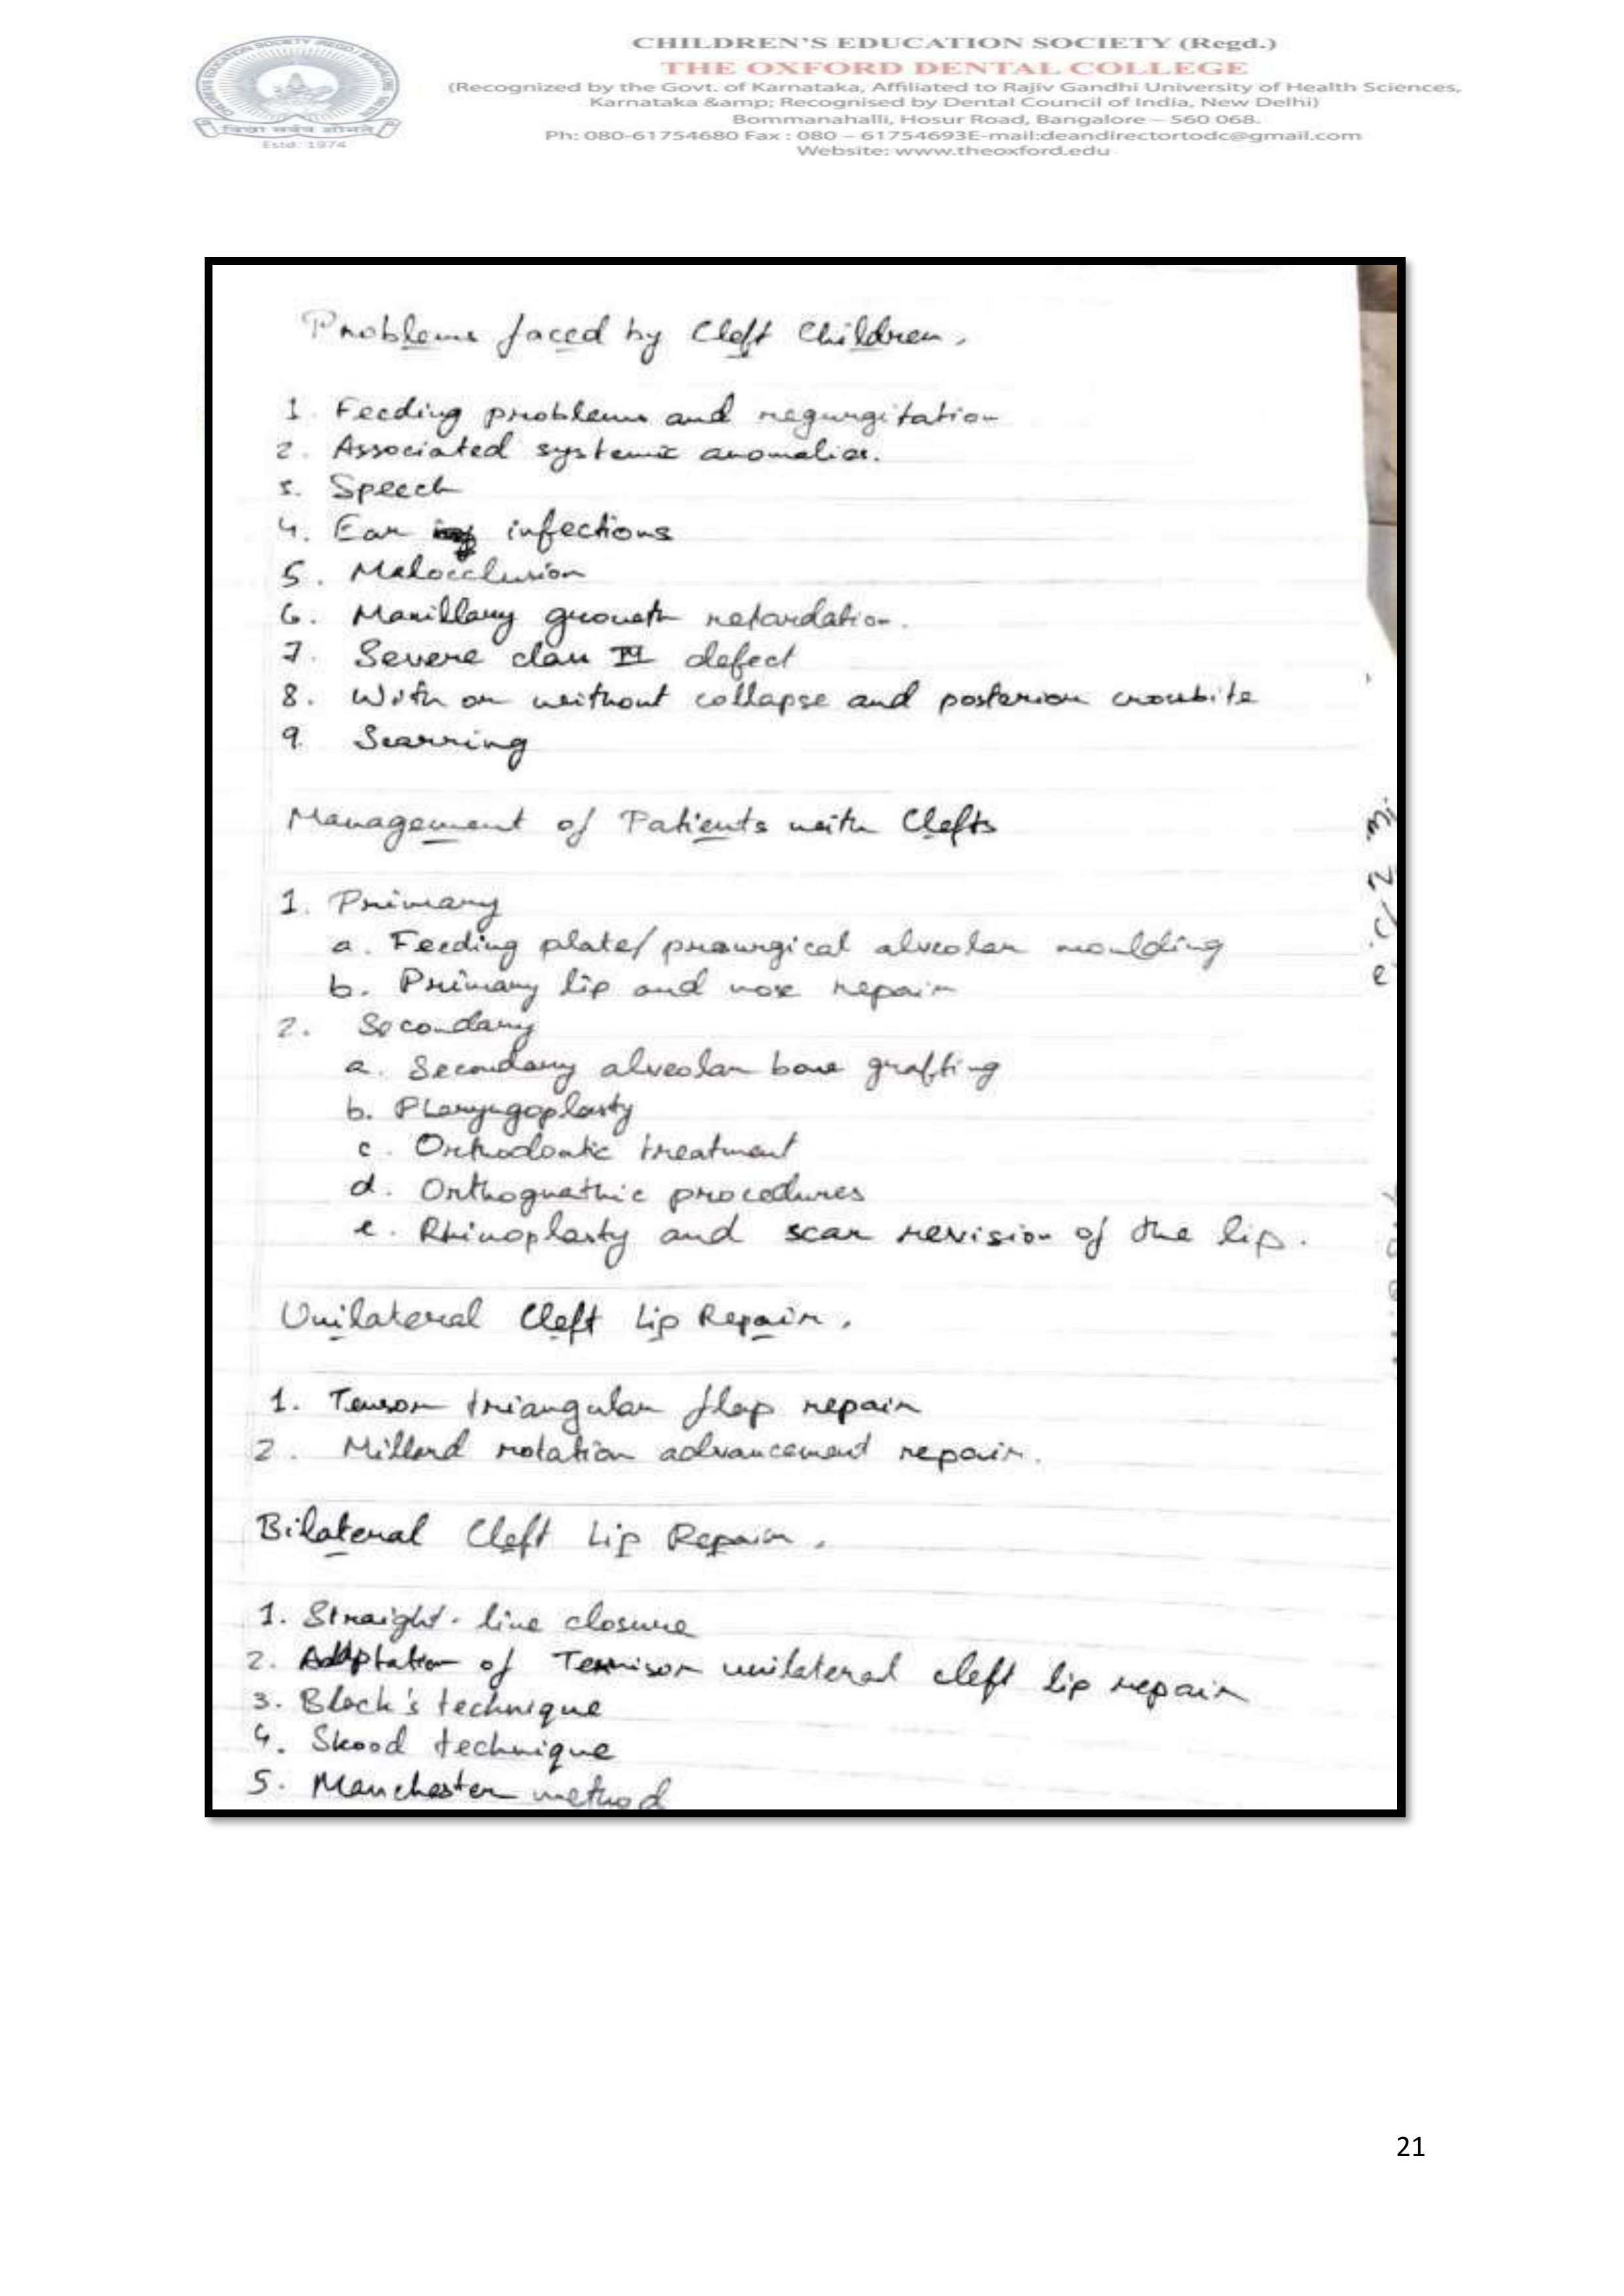 CHILDREN'S EDUCATION SOCIETY (Regd.)
THE OXFORD DENTAL COLLEGE
(Recognized by the Govt. of Karnataka, Affiliated to Rajiv Gandhi University of Health Sciences,
Karnataka &amp; Recognised by Dental Council of India, New Delhi)
Bommanahalli, Hosur Road, Bangalore – 560 068.
Ph: 080-61754680 Fax : 080 – 61754693E-mail:deandirectortodc@gmail.com
Website: www.theoxford.edu
Estd. 1974
Problems faced by Cleft Children.
1. Feeding problems and regurgitation
2. Associated systemic anomalies.
3. Speech
4. Ear infections
5. Malocclusion
6. Maxillary growth retardation.
7. Severe class III defect
8. With or without collapse and posterior crossbite
9. Scarring
Management of Patients with Clefts
1. Primary
a. Feeding plate/ presurgical alveolar moulding
b. Primary lip and nose repair
2. Secondary
a. Secondary alveolar bone grafting
b. Pharyngoplasty
c. Orthodontic treatment
d. Orthognathic procedures
e. Rhinoplasty and scar revision of the lip.
Unilateral Cleft Lip Repair.
1. triangular flap repair
2. Millard rotation advancement repair.
Bilateral Cleft Lip Repair.
1. Straight-line closure
2. Adaptation of Tennison unilateral cleft lip repair
3. Black's technique
4. Skood technique
5. Manchester method
21